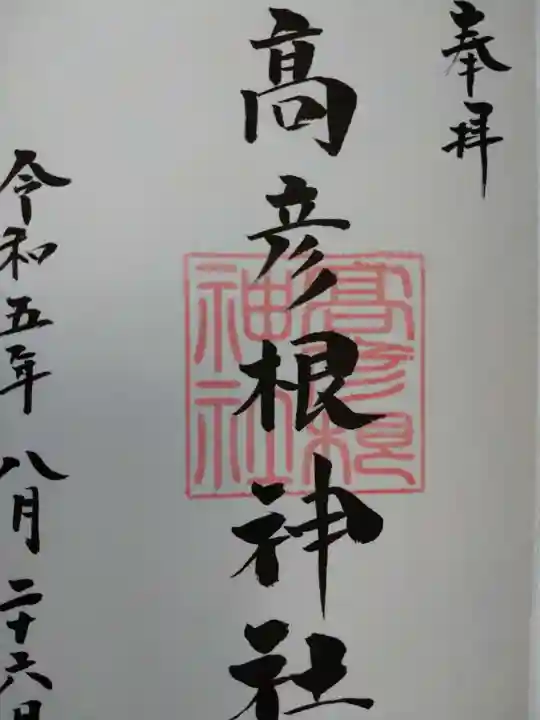 奉拝
髙彦根神社
髙彦根
神社
令和五年 八月 二十六日